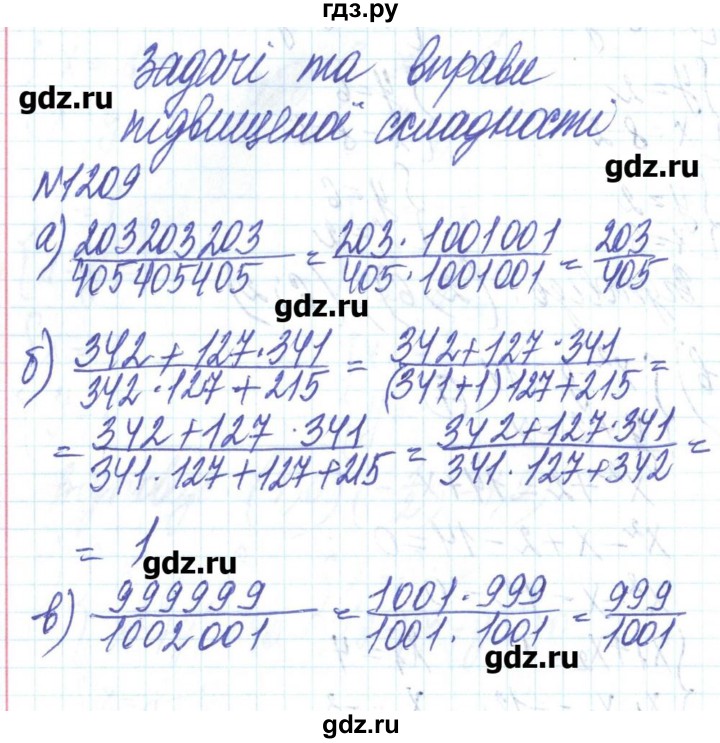 гдз.ру
Задачі та вправи
gdz.ru
підвищеної складності
gdz.ru
№1209
а) 203203203/405405405 = 203·1001001/405·1001001 = 203/405
gdz.ru
б) 342+127·341/342·127+215 = 342+127·341/(341+1)127+215 =
= 342+127·341/341·127+127+215 = 342+127·341/341·127+342 =
= 1
gdz.ru
в) 999999/1002001 = 1001·999/1001·1001 = 999/1001
gdz.ru
gdz.ru